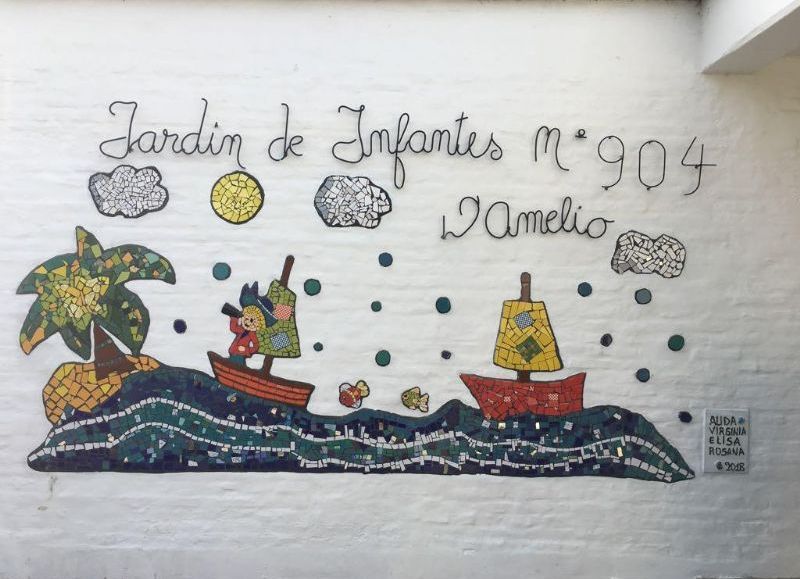 Jardin de Infantes N° 904
D'Amelio
ALIDA
VIRGINIA
ELISA
ROSANA
2018